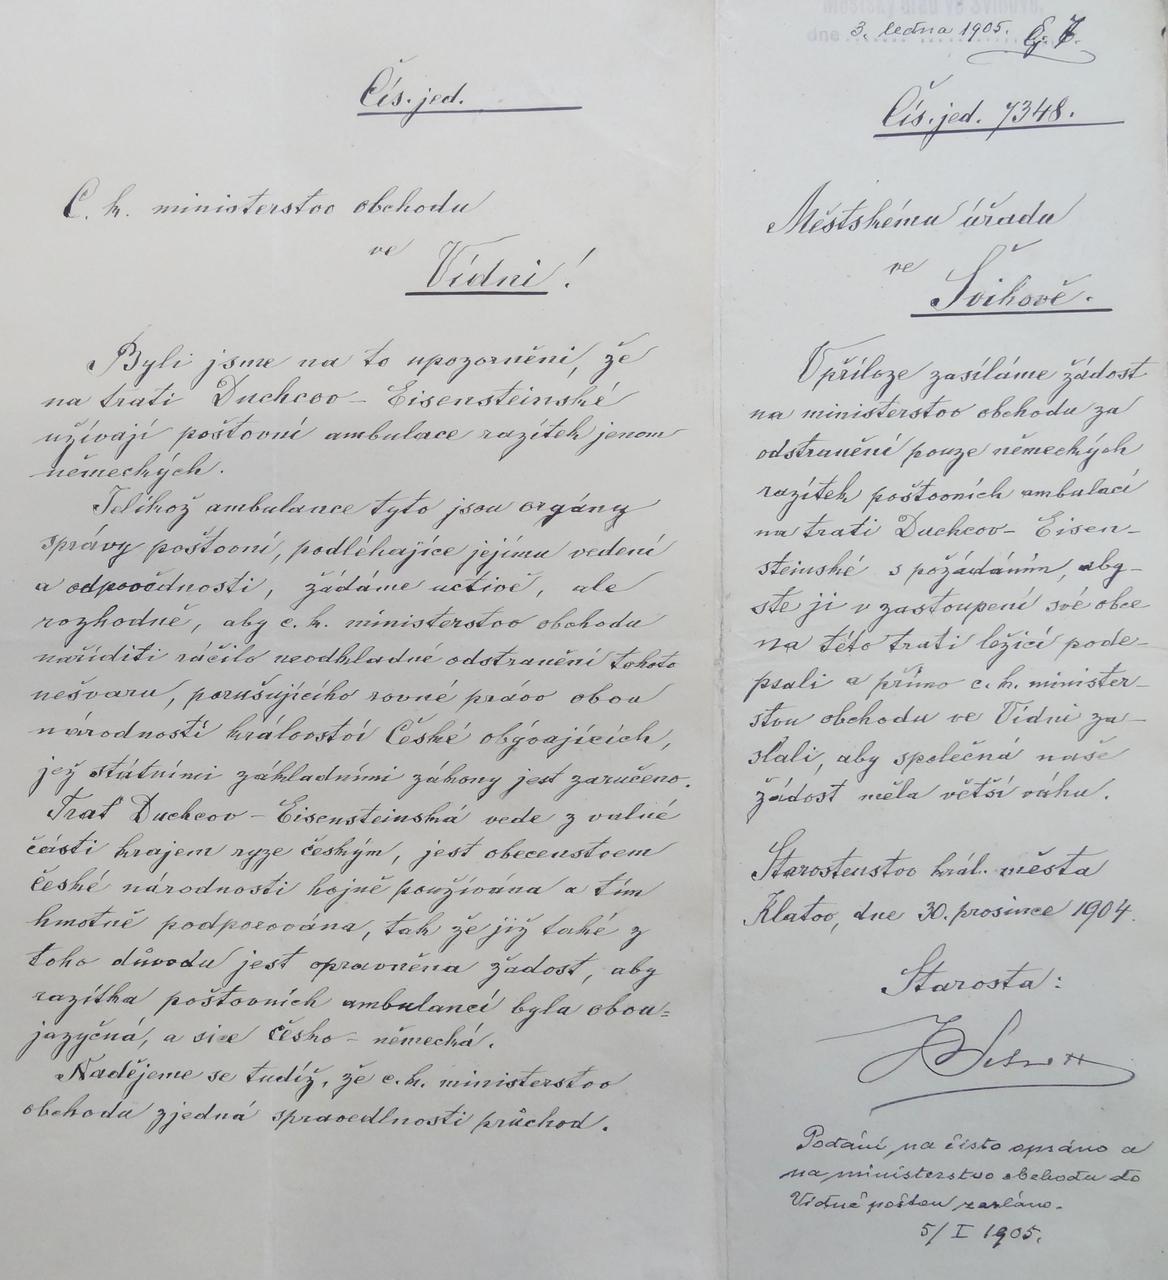 Čís. jed.
C. k. ministerstvo obchodu
ve
Vídni!
Byli jsme na to upozorněni, že
na trati Duchcov – Eisensteinské
užívají poštovní ambulace razítek jenom
německých.
Jelikož ambulance tyto jsou orgány
správy poštovní, podléhajíce jejímu vedení
a odpovědnosti, žádáme uctivě, ale
rozhodně, aby c. k. ministerstvo obchodu
naříditi ráčilo neodkladné odstranění tohoto
nešvaru, porušujícího rovné právo obou
národností království České obývajících,
jež státními zakladními zákony jest zaručeno.
Trať Duchcov – Eisensteinská vede z valné
části krajem ryze českým, jest obecenstvem
české národnosti hojně používána a tím
hmotně podporována, tak že již také z
toho důvodu jest opravněna žádost, aby
razítka poštovních ambulancí byla obou=
jazyčná, a sice česko – německá.
Nadějeme se tudíž, že c. k. ministerstvo
obchodu zjedná spravedlnosti průchod.
Městský úřad ve Švihově,
dne 3. ledna 1905.
Čís. jed. 7348.
Městskému úřadu
ve
Švihově.
V příloze zasíláme žádost
na ministerstvo obchodu za
odstranění pouze německých
razítek poštovních ambulací
na trati Duchcov – Eisen-
steinské s požádáním, aby-
ste ji v zastoupení své obce
na této trati ležící pode-
psali a přímo c. k. minister-
stvu obchodu ve Vídni za-
slali, aby společná naše
žádost měla větší váhu.
Starostenstvo král. města
Klatov, dne 30. prosince 1904.
Starosta:
Podání na čisto opsáno a
na ministerstvo obchodu do
Vídně poštou zasláno.
5/I 1905.